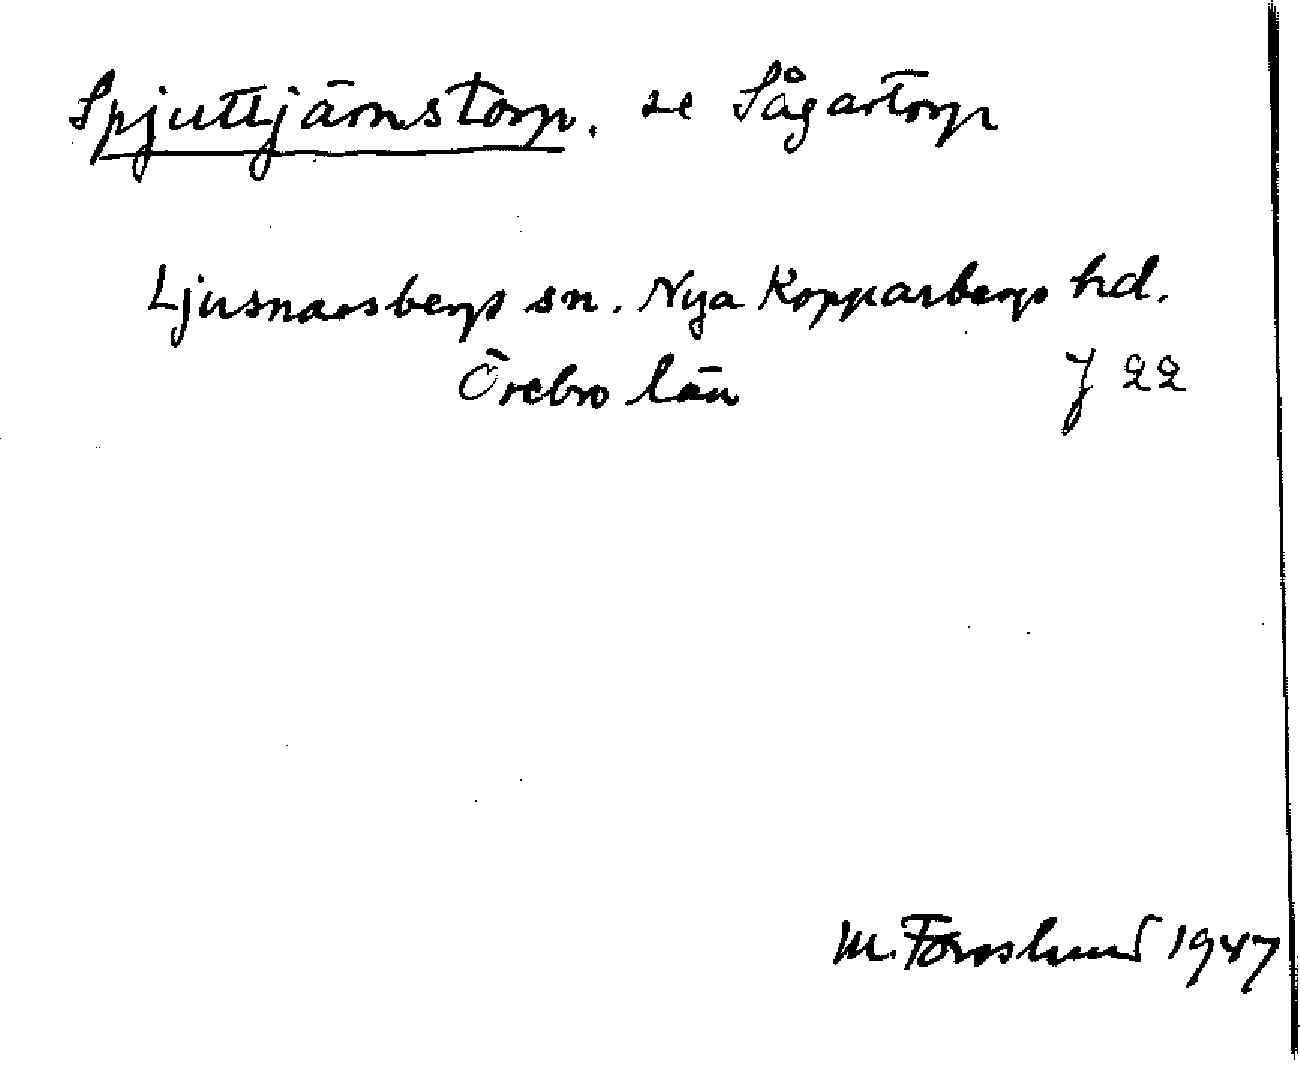 Spjuttjärnstorp. se Sågartorp
Ljusnarsbergs sn. Nya Kopparbergs hd.
Örebro län J 22
M. Forslund 1947